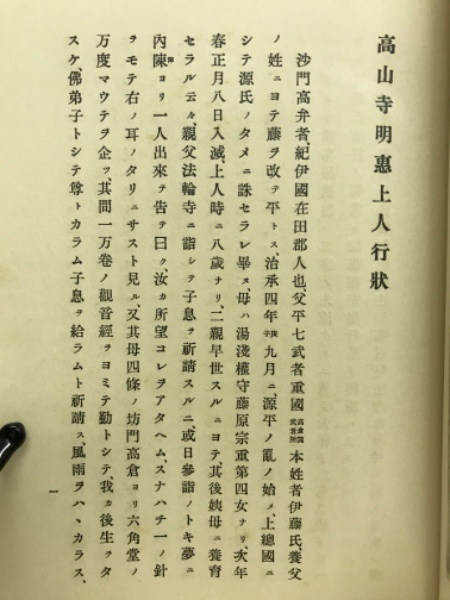 高山寺明惠上人行狀
沙門高弁者、紀伊國在田郡人也、父平七武者重國高倉院武者所本姓者伊藤氏、養父
ノ姓ニヨテ藤ヲ改テ平トス、治承四年庚子九月ニ、源平ノ亂ノ始メ、上總國ニ
シテ源氏ノタメニ誅セラレ畢ヌ、母ハ湯淺權守藤原宗重第四女ナリ、次年
春正月八日入滅、上人時ニ八歲ナリ、二親早世スルニヨテ、其後姨母ニ養育
セラル云々、親父法輪寺ニ詣シテ子息ヲ祈請スルニ、或日參詣ノトキ夢ニ
內陳ヨリ一人出來テ告テ曰ク、汝カ所望コレヲアタヘム、スナハチ一ノ針
ヲモテ右ノ耳ノタリニサスト見ル、又其母四條ノ坊門高倉ヨリ六角堂ノ
万度マウテヲ企ツ、其間一万卷ノ觀音經ヲヨミテ勤トシテ、我カ後生ヲタ
スケ、佛弟子トシテ尊トカラム子息ヲ給ラムト祈請ス、風雨ヲハヽカラス、
一